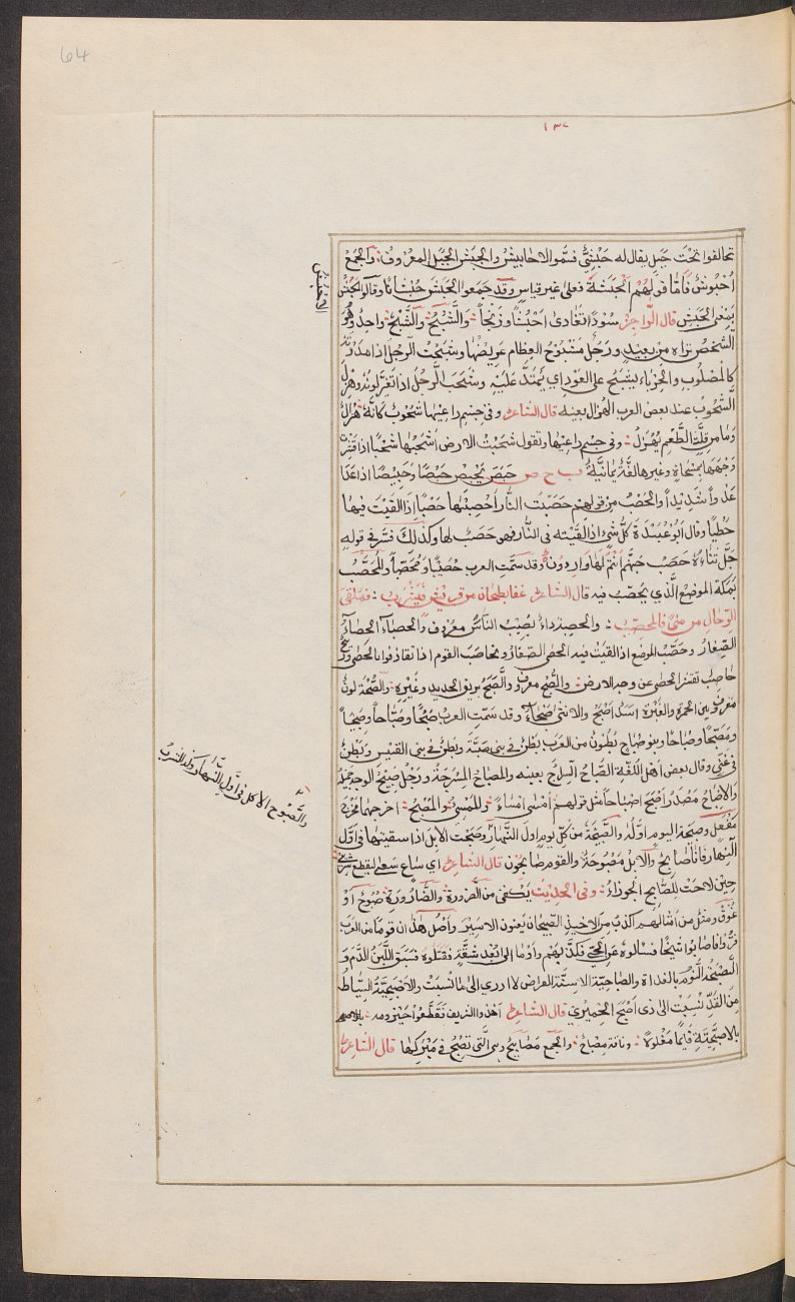 64
١٣٧
تحالفوا تحْتَ جبَل يقال له حَبْشِيّ فسُمُّوا الاحابيش والحبَش الجيل المعرُوف والجمْع
أُحبُوشٌ فامّا قولهُم الحَبَشةُ فعلى غير قياسٍ وقد جَمعوا الحبَش حُبْشانًا وقالوا الحُبْشُ
الاحبُش
بمعنى الحَبَش قال الراجز سُودًا تغادى احْبُشًا وزنجاً والشَبَحُ والشَّبْحُ واحدٌ وهُوَ
الشخصُ تراهُ من بعيدٍ ورجُل مَشبوُحُ العِظام عريضُها وشبَحْتُ الرجُل اذا مدَدْتَهُ
كالمصْلوب والحِرْباء يتشبّحُ على العُود اي يَمْتدُّ عَليْهِ وشَحَبَ الرجُل اذا تغيَّر لونُه وهُزِلَ
الشحُوبُ عند بعض العرب الهزال بعينه قال الشاعر وفي جسم راعيها شحُوبٌ كانّه هُزالٌ
وما من قِلّة الطُعْم يُهزَلُ وفي جسْم راعيْها وتقول شحَبْتُ الارض أشحَبُها شَحْبًا اذا قشَرْتَ
وجْهَها بمِسْحاةٍ وغيرها لغَةٌ يمانيّةٌ ب ح ص حبَصَ يحْبِصُ حَبْصًا وحَبِيصًا اذا عَدَا
عَدْواً شديداً والحَصْبُ من قولهم حَصَبْت النّار أحْصِبُها حَصْبًا اذا القَيْتَ فيها
حَطَبًا وقال ابُو عُبَيْدة كلُّ شيءٍ القَيْته في النّار فهو حَصَبٌ لها وكذلك فسّر في قوله
جَلّ ثناؤُه حَصَبُ جهنّم انتُمْ لهَا وارِدُون وقد سمّت العرب حُصَيْبًا ومُحَصَّبًا والمُحَصَّبُ
بمكّة الموضعُ الّذي يُحصَّب فيه قال الشاعر عفا بطحانُ من قريشٍ فيَثرِبُ فمُلْقى
الرّحال من مِنًى فالمُحصَّبُ والحصبةُ داءٌ يُصِيْبُ الناسَ معْرُوف والحصباء الحصا
الصّغارُ وحصّبْتُ الموضع اذا القيْتُ فيه الحصى الصغار وتحاصَبَ القوم اذا تقاذفوا بالحصى وريح
حاصِبٌ تقشرُ الحصى عن وجه الارض والصُبْحُ معروفٌ والصَّبَحُ بريق الحديد وغيْره والصُّبحةُ لونٌ
معرُوفٌ بين الحمرة والغُبْرة اسَدٌ اصْبَحُ والانثى صَبْحاءُ وقد سَمّت العربُ صُبْحًا وصُبَاحاً وصُبَيْحًا
ومُصَبِّحًا وصَباحًا وبنو صُباحٍ بُطونٌ من العَرَب بَطْنٌ في بني ضَبّةَ وبَطْنٌ في بني القيْس وبَطْنٌ
في غَنِيّ وقال بعض اهْل اللُغَةِ الصّباحُ السِّراجُ بعينه والمصباحُ المِسْرَجَةُ ورَجُل صَبيحُ الوجه جميلهُ
والاصْباحُ مصْدَرُ أصْبَحَ إصْباحًا مثل قولهم امْسى امْساءً والمُمْسى والمُصْبَحُ اخرجهما مخْرج
والصَّبُوح الاكل في اوّل النّهار وكذلك الشربُ
مُفْعَل وصبحة اليوم اوّلُه والصَّبيحةُ من كلّ يومٍ اول النّهار وصبَحْتُ الابلَ اذا سقيتَها في اوّل
النهار فانا صابحٌ والابلُ مَصبُوحَةٌ والقوم صابحُون قال الشاعر اي ساعٍ سَعى ليقطعَ شِرْبي
حِينَ لاحَتْ للصّابح الجوْزاءُ وفي الحديث يكفي من الضرورة والضّارُورَة صَبُوحٌ اوْ
غَبُوقٌ ومثَلٌ من امثالهم اكذبُ من الاخيذِ الصَّبْحان يَعنون الاسيْرَ واصْلُ هٰذا ان قومًا من العَرَب
فاصابوا شيْخًا فسالوهُ عن الحيّ فكذَبهُم واوْما الى بُعْدِ شُقّةٍ فقتلُوه فسَبَق اللّبنُ الدّمَ و
الصُبْحَةُ النّومُ بالغداة والصّباحيّة الاسنّة العِراض لا ادري الى ما نُسبَتْ والاصْبَحيّة السِّياطُ
من القِدِّ نُسبَتْ الى ذي أصْبَحَ الحِمْيَريّ قال الشاعر اخذوا العَريف فقطَّعُوا حَيْزُومَه بالاصبحـ
بالاصبَحيّةِ قايمًا مَغْلُولًا وناقة مصْباحٌ والجمع مَصابيحُ وهي التي تصْبحُ في مَبْرَكها قال الشاعر